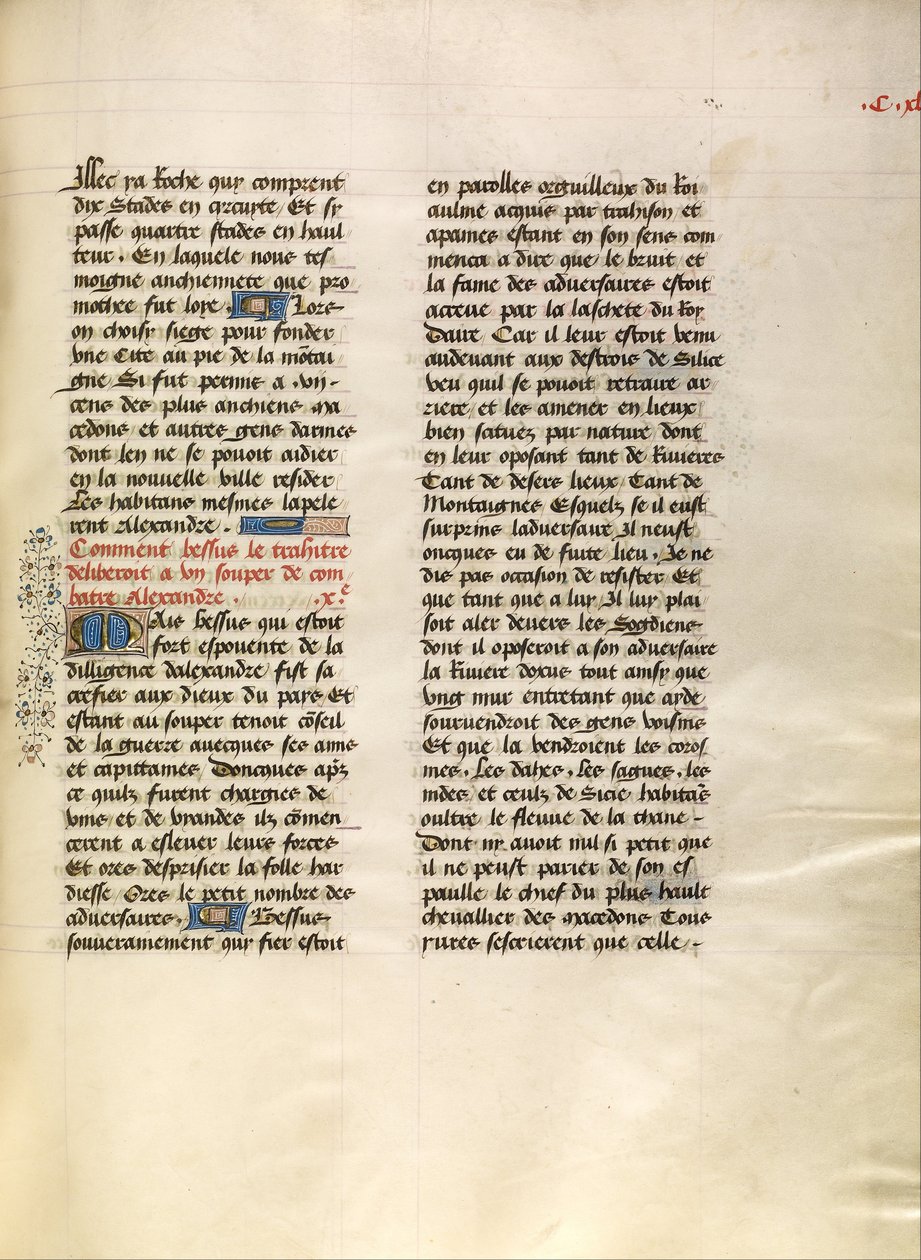 .C.xl
Illec ya Roche quy comprent
dix Stades en circuyte Et sy
passe quattre stades en haul
teur. En laquele nous tes
moigne anchiennete que pro
mothee fut loye. Lors
on choisy siege pour fonder
vne Cite au pie de la mōtai
gne Si fut permis a .vij.
cens des plus anchiens ma
cedons et autres gens darmes
dont len ne se pouoit aidier
en la nouuelle ville resider
Les habitans mesmes lapele
rent Alexandre.
Comment bessus le trahitre
deliberoit a vn souper de com
batre Alexandre. .x.e
Mais bessus qui estoit
fort espouente de la
dilligence dalexandre fist sa
crefier aux dieux du pays Et
estant au souper tenoit cōseil
de la guerre auecques ses amis
et capittaines Doncques apṝs
ce quilz furent chargies de
vins et de viandes ilz cōmen
cerent a esleuer leurs forces
Et ores desprisier la folle har
diesse Ores le petit nombre des
aduersaires. Bessus
souuerainement quy fier estoit
en parolles orguilleux du Roi
aulme acquis par trahison et
apaines estant en son sens com
menca a dire que le bruit et
la fame des aduersaires estoit
acreue par la laschete du Roy
Daire Car il leur estoit venu
audeuant aux destrois de Silice
veu quil se pouoit retraire ar
riere et les amener en lieux
bien scituez par nature dont
en leur oposant tant de Riuieres
Tant de desers lieux Tant de
Montaignes Esquelz se il eust
surprins laduersaire Il neust
oncques eu de fuite lieu. Je ne
dis pas occasion de resister Et
que tant que a luy Il luy plai
soit aler deuers les Sogdiens
dont il oposeroit a son aduersaire
la Riuiere doxus tout ainsy que
vng mur entretant que ayde
souruendroit des gens voisins
Et que la vendroient les coros
mes. Les dahes. Les sagues. les
indes et ceulz de Sicie habitās
oultre le fleuue de la thane
Dont ny auoit nul si petit que
il ne peust parier de son es
paulle le chief du plus hault
cheuallier des macedons Tous
yures sescrierent que celle